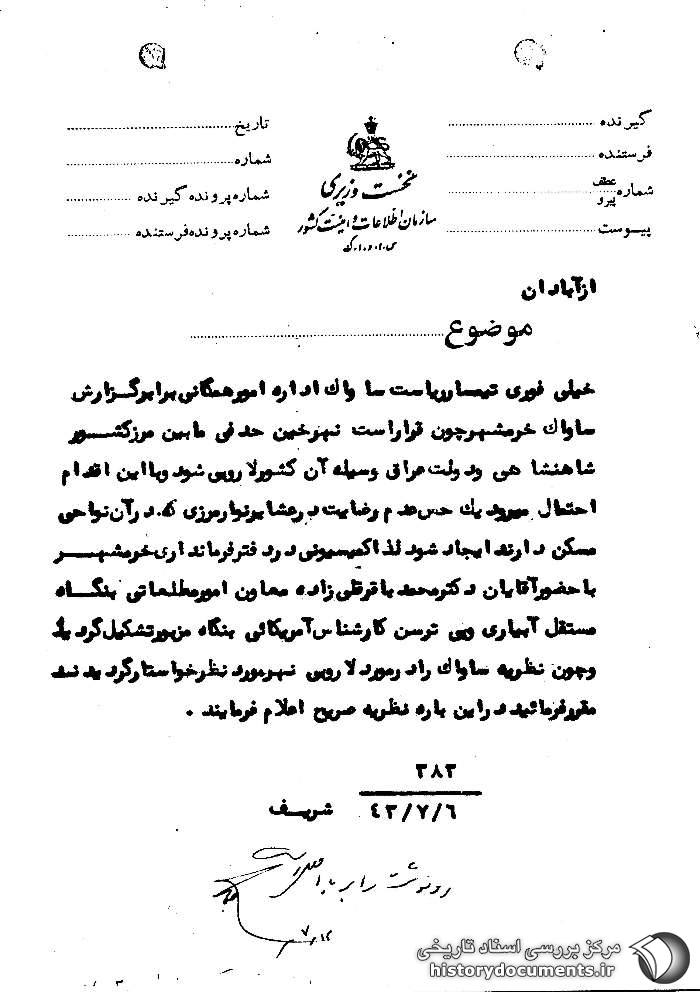 گیرنده
فرستنده
شماره عطف پیرو
پیوست
نخست وزیری
سازمان اطلاعات و امنیت کشور
س.ا.و.ا.ک
تاریخ
شماره
شماره پرونده گیرنده
شماره پرونده فرستنده
از آبادان
موضوع
خیلی فوری تیمسار ریاست ساواک اداره امور همگانی برابر گزارش
ساواک خرمشهر چون قرار است نهر خین حد فی مابین مرز کشور
شاهنشاهی و دولت عراق وسیله آن کشور لاروبی شود و با این اقدام
احتمال میرود یک حس عدم رضایت در عشایر نوار مرزی که در آن نواحی
مسکن دارند ایجاد شود لذا کمیسیونی در دفتر فرمانداری خرمشهر
با حضور آقایان دکتر محمد باقر قلی زاده معاون امور مطلعاتی بنگاه
مستقل آبیاری وپی ترسن کارشناس آمریکائی بنگاه مزبور تشکیل گردید
و چون نظریه ساواک را در مورد لاروبی نهر مورد نظر خواستار گردیدند
مقرر فرمائید در این باره نظریه صریح اعلام فرمایند .
۳۸۳
۴۳/۷/۶ شریف
رونوشت برابر با اصل است
۷/۱۲
مرکز بررسی اسناد تاریخی
historydocuments.ir